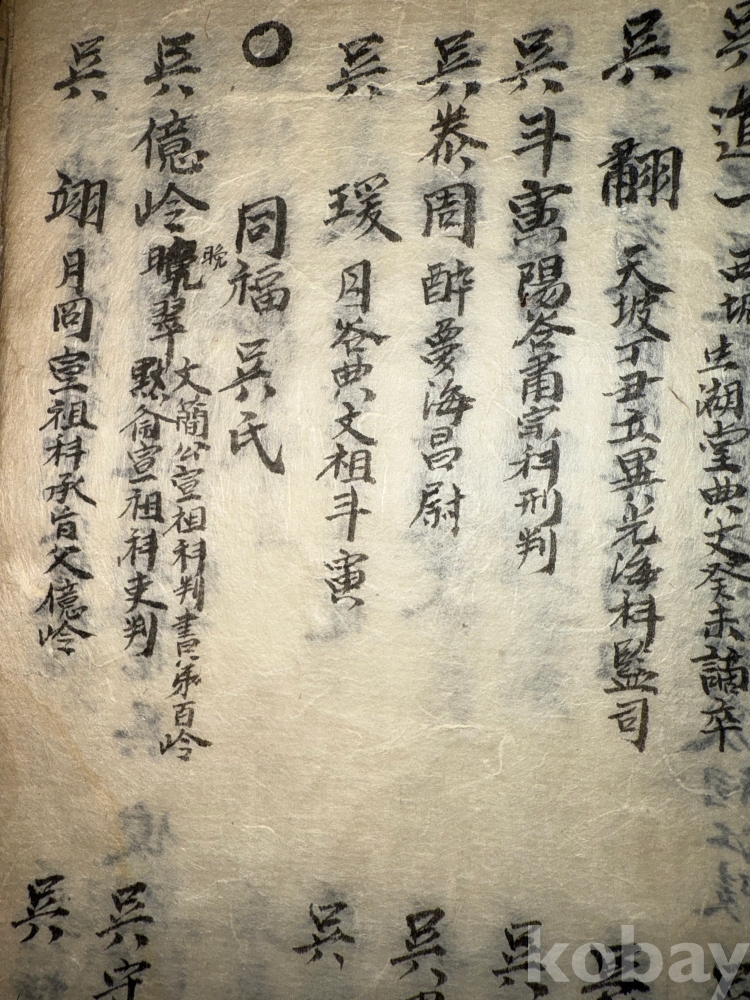 吳道一 西坡 生湖堂典文癸未謫卒
吳翿 天坡丁丑立異光海科監司
吳斗寅 陽谷肅宗科刑判
吳泰周 醉夢海昌尉
吳瑗 月谷典文祖斗寅
○同福吳氏
吳億岭 晩翠
晩
文簡公宣祖科判書弟百岭
默齋宣祖科吏判
吳翊 月岡宣祖科承旨父億岭
吳
吳
吳
吳
吳守
吳
kobay